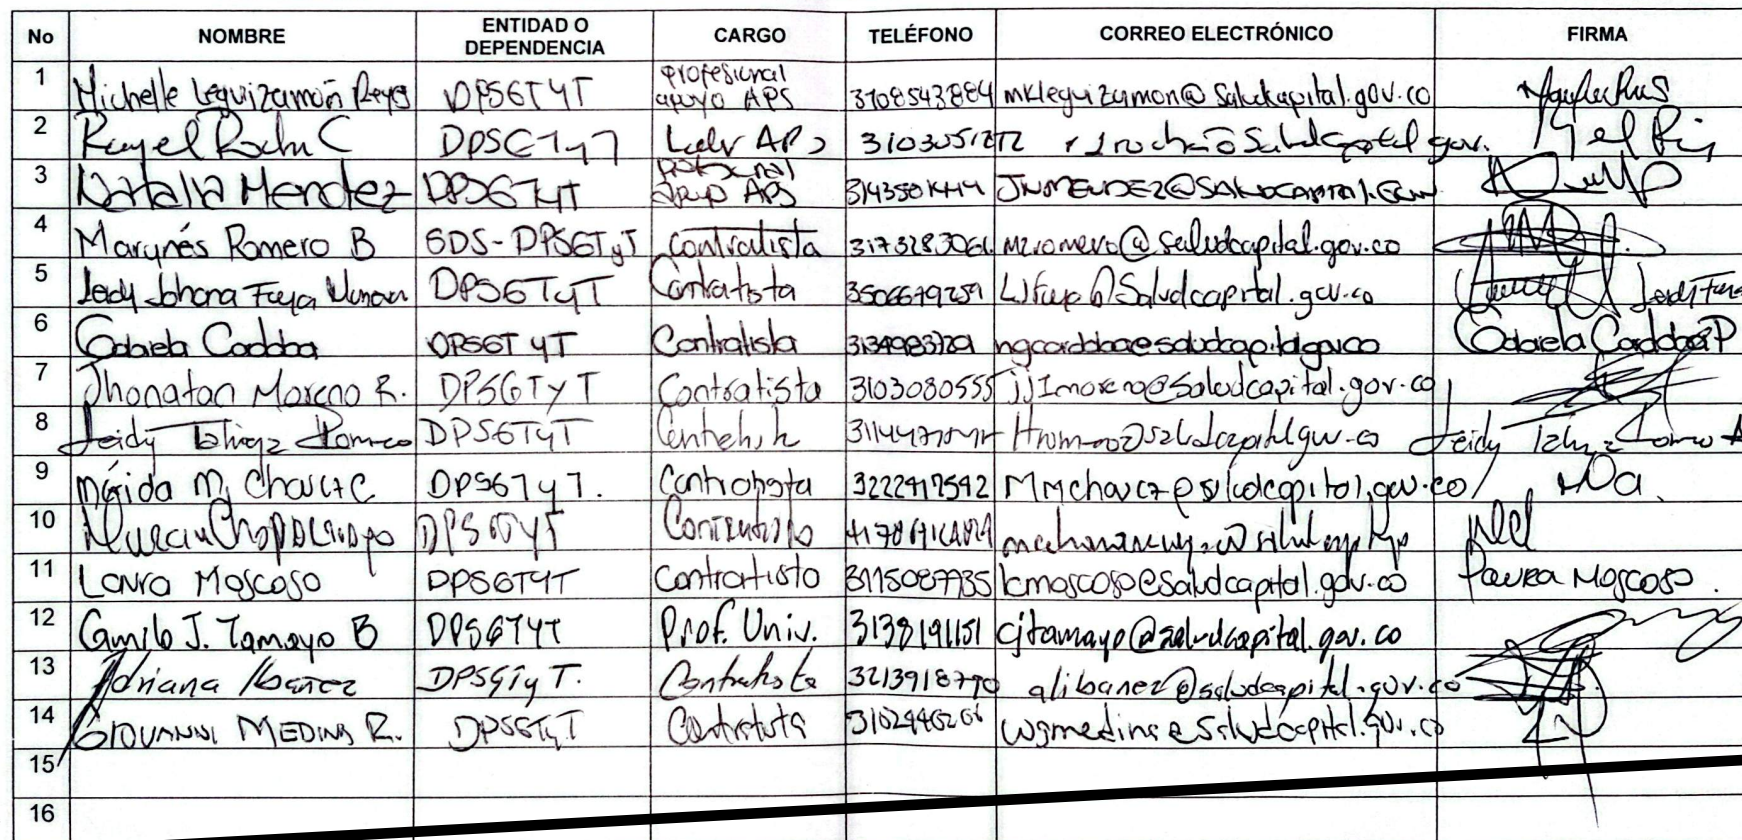 No NOMBRE ENTIDAD O DEPENDENCIA CARGO TELÉFONO CORREO ELECTRÓNICO FIRMA
1 Michelle Leguizamón Reyes DPSGTYT profesional apoyo APS 3108543884 mkleguizamon@saludcapital.gov.co
2 DPSGTyT Líder APS
3 Natalia Mendez DPSGTyT profesional apoyo APS JNMENDEZ@SALUDCAPITAL.GOV
4 Marynés Romero B SDS-DPSGTyT Contratista 3173283061 mzromero@saludcapital.gov.co
5 Leidy Johana Faya DPSGTyT Contratista 3506679259 Ljfaya@Saludcapital.gov.co
6 Gabriela Cordoba DPSGT YT Contratista 3134983729 ngcordoba@saludcapital.gov.co Gabriela Cordoba P
7 Jhonatan Moreno R. DPSGTyT Contratista 3103080555 jj1moreno@saludcapital.gov.co
8 Leidy Romero DPSGTyT Contratista Leidy Romero
9 M. Chavez C DPSGTyT. Contratista 3222917592 Mmchavez@saludcapital.gov.co
10 DPSGTyT Contratista
11 Laura Moscoso DPSGTYT Contratista 3115087735 lcmoscoso@saludcapital.gov.co Laura Moscoso.
12 Camilo J. Tamayo B DPSGTYT Prof. Univ. 3138191151 cjtamayo@saludcapital.gov.co
13 Adriana Ibañez DPSGTyT. Contratista 3213918770 alibanez@saludcapital.gov.co
14 GIOVANNI MEDINA R. DPSGTyT Contratista 3102946266 wgmedina@saludcapital.gov.co
15
16